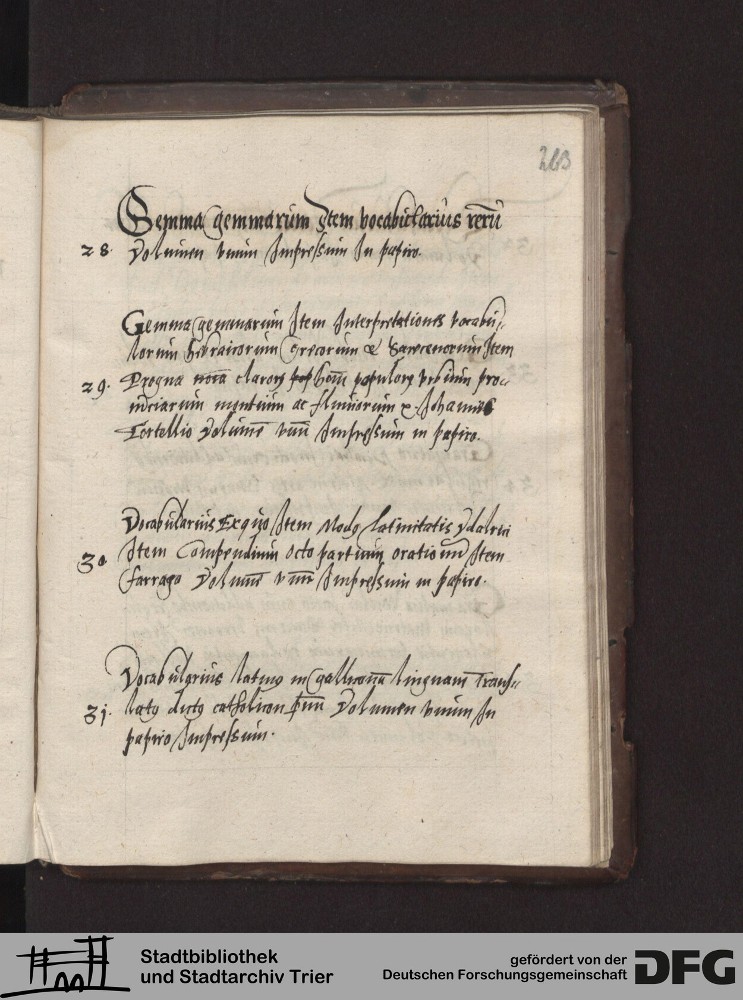 263
Gemma gemmarum Item vocabularius rerū
28. Volumen vnum Impressum In papiro.
Gemma gemmarum Item Interpretationes vocabu„
lorum hebraicorum Grecorum & Saracenorum Item
29. clarorꝝ populorꝝ vrbium pro„
uinciarum montium ac fluuiorum Johannis
Tortellio Volumē vnū Impressum in papiro.
Vocabularius Exquo Item Modꝯ latinitatis Vdalrici
30 Item Compendium octo partium orationū Item
farrago Volumē vnū Impressum in papiro.
Vocabularius latinꝯ in gallicanā linguam Trans„
31. latꝯ dictꝯ catholicon Volumen vnum In
papiro Impressum.
Stadtbibliothek
und Stadtarchiv Trier
gefördert von der
Deutschen Forschungsgemeinschaft
DFG